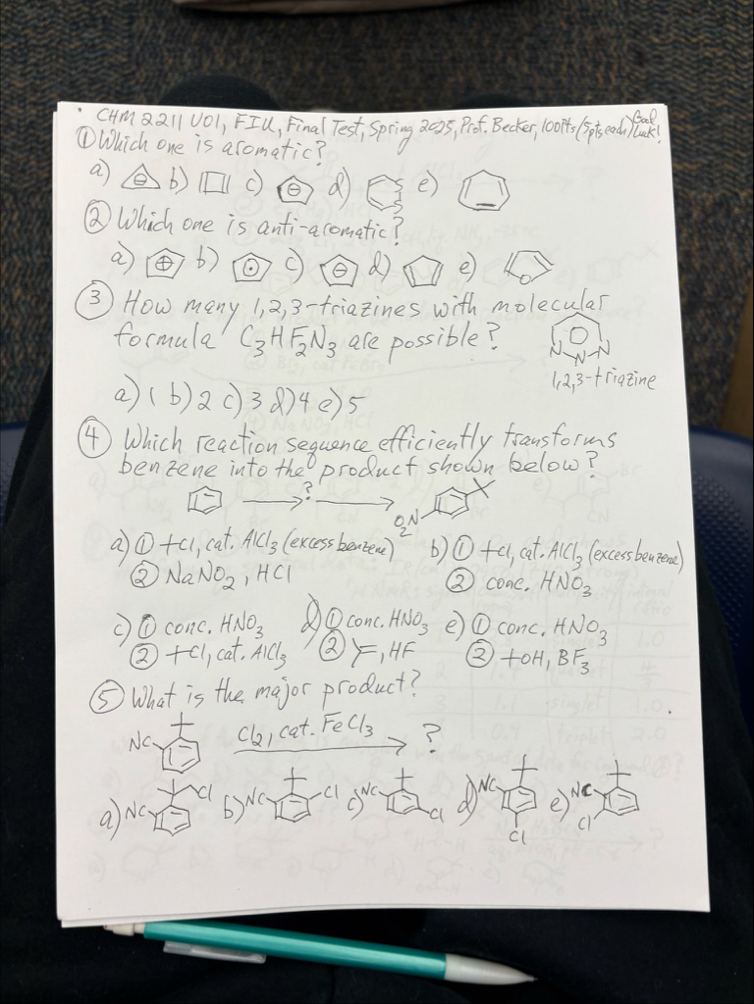 CHM 2211 U01, FIU, Final Test, Spring 2025, Prof. Becker, 100Pts (5pts each) Good Luck!
① Which one is aromatic?
a) ⊖ b) c) ⊖ d) e)
② Which one is anti-aromatic?
a) ⊕ b) • c) ⊖ d) e) O
③ How many 1,2,3-triazines with molecular
formula C₃HF₂N₃ are possible?
N N N
1,2,3-triazine
a) 1 b) 2 c) 3 d) 4 e) 5
④ Which reaction sequence efficiently transforms
benzene into the product shown below?
?
O₂N
a) ① Cl, cat. AlCl₃ (excess benzene) b) ① Cl, cat. AlCl₃ (excess benzene)
② NaNO₂, HCl ② conc. HNO₃
c) ① conc. HNO₃ d) ① conc. HNO₃ e) ① conc. HNO₃
② Cl, cat. AlCl₃ ② , HF ② OH, BF₃
⑤ What is the major product?
NC Cl₂, cat. FeCl₃ ?
a) NC Cl b) NC Cl c) NC Cl d) NC Cl e) NC Cl